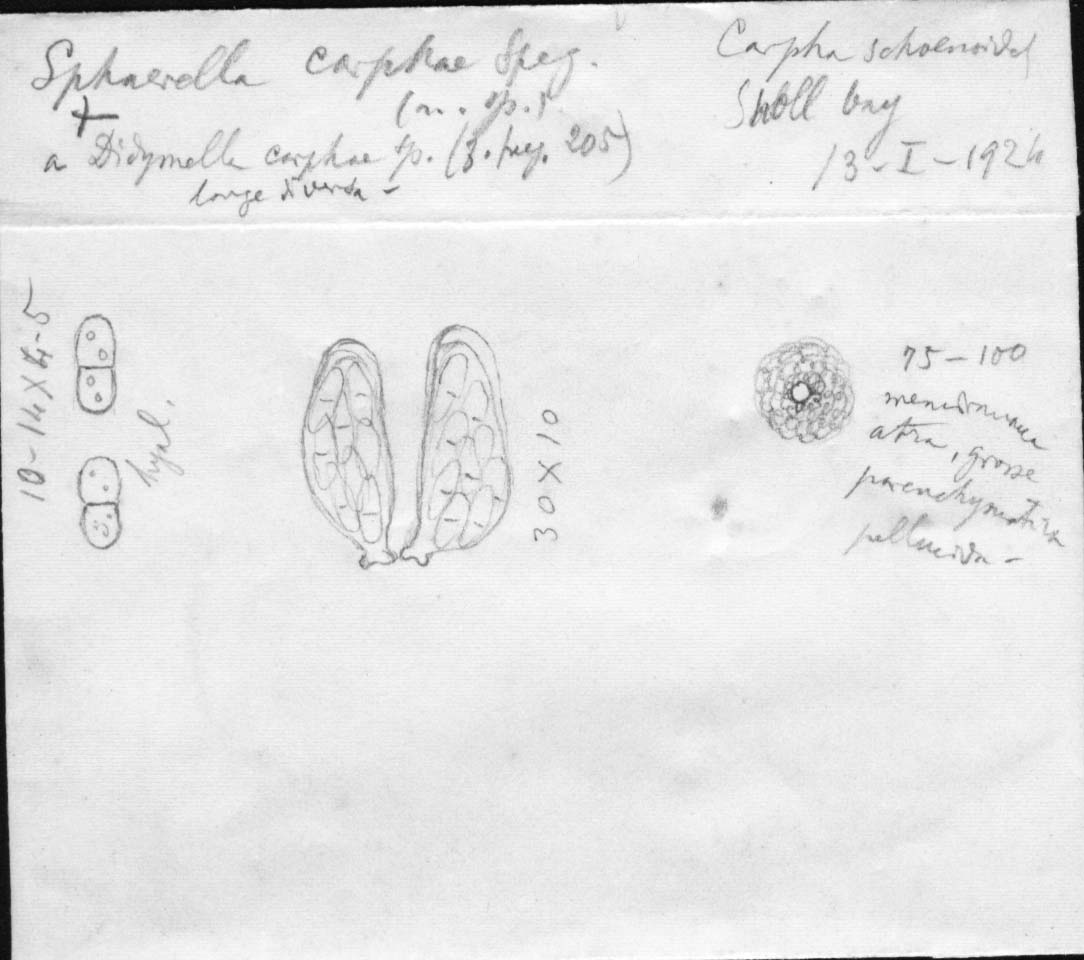 Sphaerella carphae Speg.
(n. sp.)
+
a Didymella carphae sp. (F. fueg. 205)
longe diversa -
Carpha schoenoides
Snoll bay
13-I-1924
10-14X4-5
hyal.
30X10
75-100
membranacea
atra, grosse
parenchymatica
pellucida -